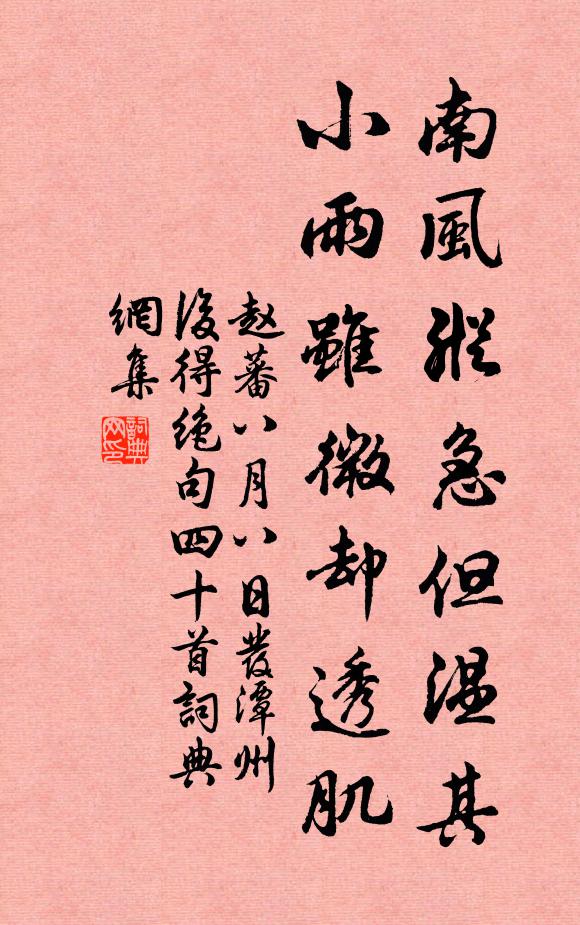 南風縱急但温其
小雨雖微却透肌
赵蕃八月八日發潭州
後得絶句四十首詞典
網集
詞典
网印